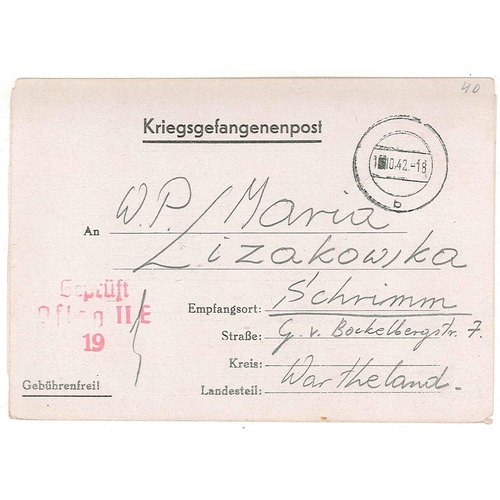 40
Kriegsgefangenenpost
10.42.-18
b
An W.P. Maria
Lizakowska
Geprüft
Oflag II E
19
Empfangsort: Schrimm
Straße: G. v. Bockelbergstr. 7.
Kreis:
Landesteil: Wartheland.
Gebührenfrei!